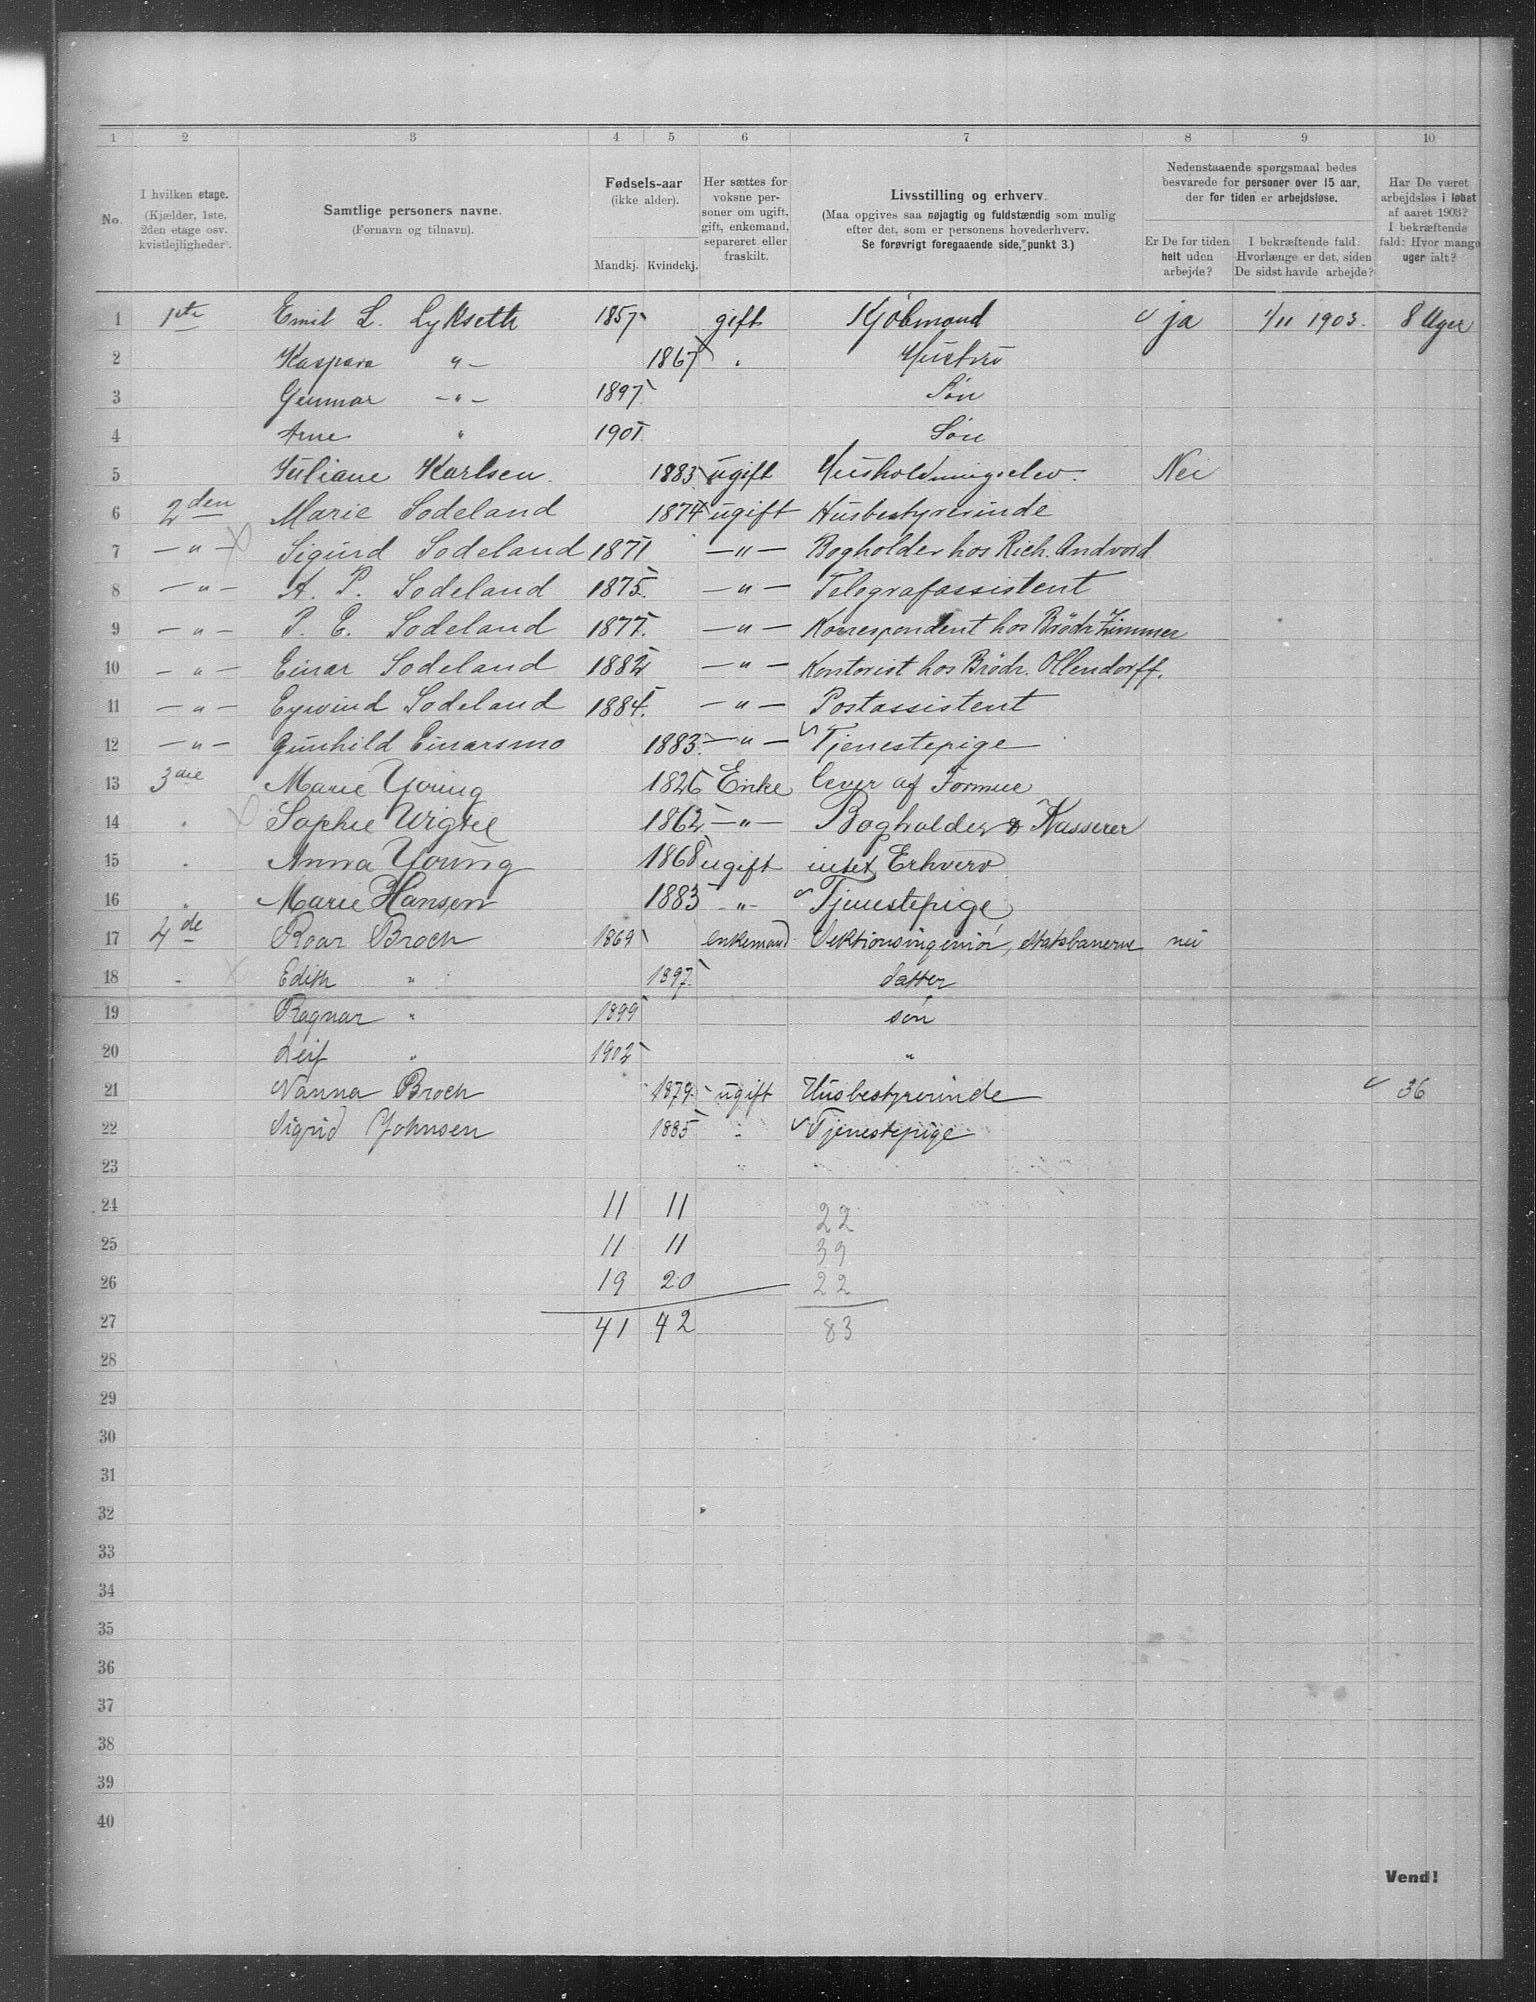 1 2 3 4 5 6 7 8 9 10
No.
I hvilken etage.
(Kjælder, 1ste,
2den etage osv.
kvistlejligheder).
Samtlige personers navne.
(Fornavn og tilnavn).
Fødsels-aar
(ikke alder).
Mandkj. Kvindekj.
Her sættes for
voksne per-
soner om ugift,
gift, enkemand,
separeret eller
fraskilt.
Livsstilling og erhverv.
(Maa opgives saa nøjagtig og fuldstændig som mulig
efter det, som er personens hovederhverv.
Se forøvrigt foregaaende side, punkt 3.)
Nedenstaaende spørgsmaal bedes
besvarede for personer over 15 aar,
der for tiden er arbejdsløse.
Er De for tiden
helt uden
arbejde?
I bekræftende fald:
Hvorlænge er det, siden
De sidst havde arbejde?
Har De været
arbejdsløs i løbet
af aaret 1903?
I bekræftende
fald: Hvor mange
uger ialt?
1 1ste Emil L. Lykseth 1857 gift Kjøbmand ja 1/11 1903. 8 Uger
2 Kaspara " 1867 " Hustru
3 Gunnar " 1897 Søn
4 Arne " 1901 Søn
5 Juliane Karlsen. 1883 ugift Husholdningselev. Nei
6 2den Marie Sodeland 1874 ugift Husbestyrerinde
7 — " — Sigurd Sodeland 1871 — " — Bogholder hos Rich. Andvord
8 — " — A. P. Sodeland 1875. — " — Telegrafassistent
9 — " — P. E. Sodeland 1877. — " — Korrespondent hos Brødr. Zimmer
10 — " — Einar Sodeland 1882 — " — Kontorist hos Brødr. Ollendorff.
11 — " — Eyvind Sodeland 1884. — " — Postassistent
12 — " — Gunhild Einarsmo 1883. — " — Tjenestepige
13 3die Marie Young 1826 Enke lever af Formue
14 " Sophie Wigtel 1862 — " — Bogholder & Kasserer
15 " Anna Young 1868 ugift intet Erhverv
16 " Marie Hansen 1883 — " — Tjenestepige
17 4de Roar Broch 1869 enkemand Sektionsingeniør, statsbanerne nei
18 " Edith " 1897 datter
19 Ragnar " 1899 søn
20 Leif " 1902 "
21 Nanna Broch 1879 ugift Husbestyrerinde 36
22 Sigrid Johnsen 1885 " Tjenestepige
23
24 11 11 22
25 11 11 39
26 19 20 22
27 41 42 83
28
29
30
31
32
33
34
35
36
37
38
39
40
Vend!